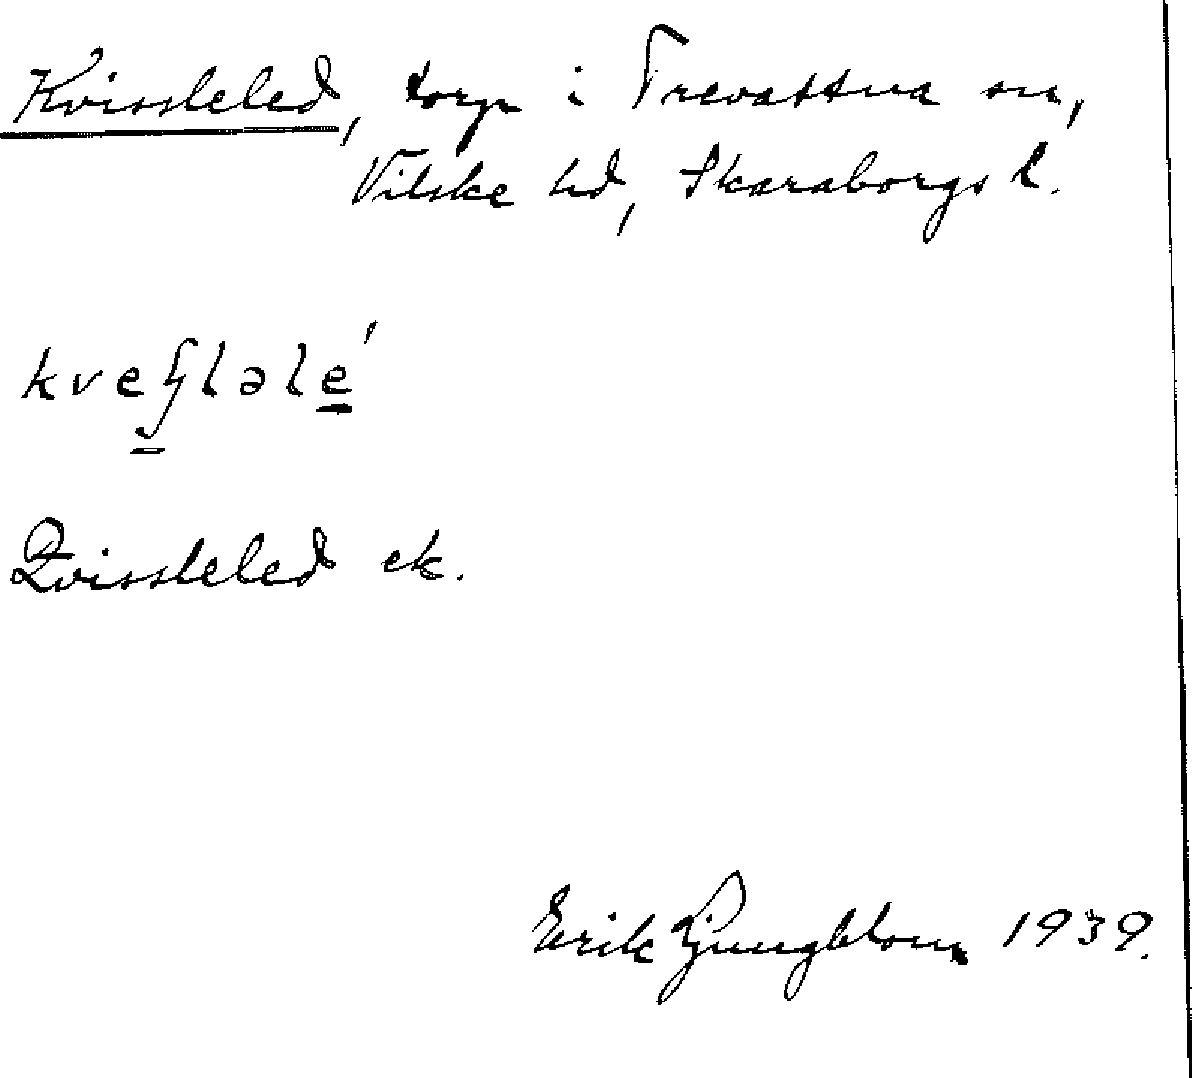 Kvissleled, torp i Trevattna sn,
Vilske hd, Skaraborgs l.
kveʃlələ́
Qvissleled ek.
Erik Ljungblom 1939.